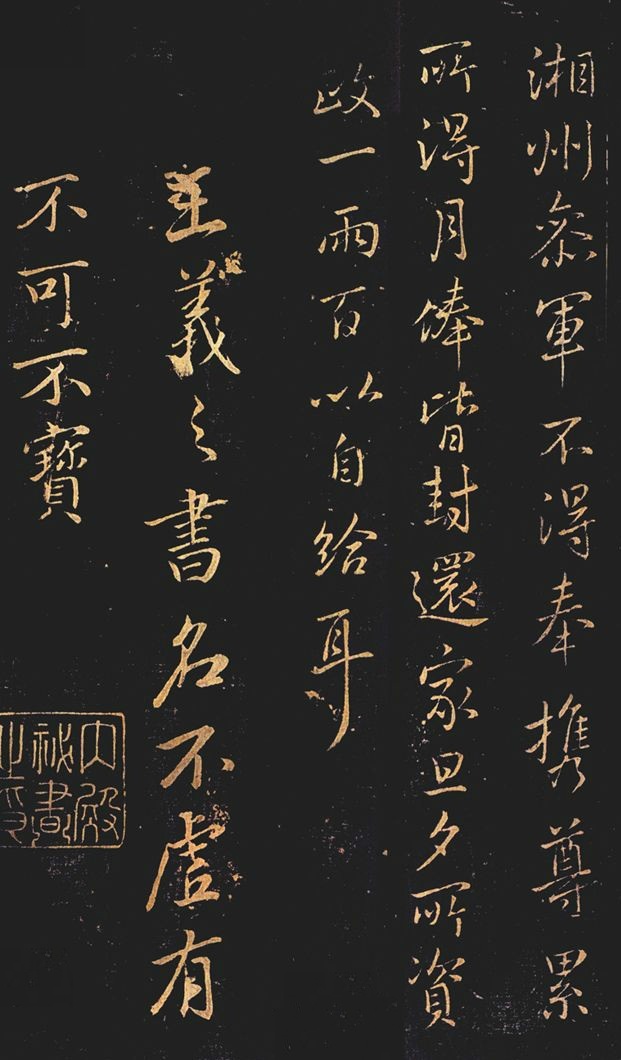 湘州叅軍不得奉携尊累
所得月俸皆封還家旦夕所資
政一兩百以自給耳
王羲之書名不虛有
不可不寶
内殿
秘書
之印